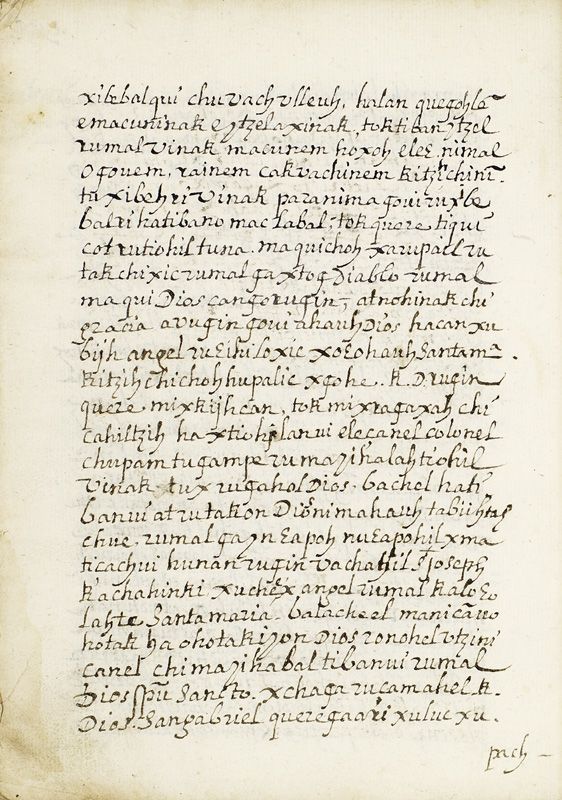 xibebal qui chuvach vlleuh, halan quegohlã
emacuninak eytzelaxinak, tok tiban ytzel
rumal vinak macunem hoxoh eleɛ, nimal
ogouem, rainem cakvachinem kitzih chinũ.
ta xibeh ri vinak paranima goui ru xibe
bal ri hatibano mac labal, tok quere tiqui
cot rutiohil tuna. maquichoh xarupael ru
tak chixic rumal gaxtog Diablo rumal
maqui Dios cango rugin, atnohinak chi
gracia a rugin goui ahauh Dios hacan xu
bijh angel ruɛihiloxic xoɛohauh Santa mª.
Kitzih chi choh hupalic xgohe. K. D. rugin
quere mixkijhcan, tok mixragaxah chi
cahiltzih ha xtiohilanui ele canel colonel
chupam tugampe rumayihalah tiohil
Vinak tux rugahol Dios. bachel hati
banui at rutakon Dios nimahauh tabijhtah
chue. rumal ga yn ɛapoh nu ɛapohil xma
ticachui hunan rugin vachahil S. Joseph
Kachahinki xucheex angel rumal kaloɛo
lahte Santa maria. balacheel manicauo
hotak ha ohotakiyon Dios ronohel vtzini
canel chi mayihabal tibanui rumal
Dios spũ Sancto. xchaga rucamahel K.
Dios. San gabriel queregaari xuluc xu.
pach